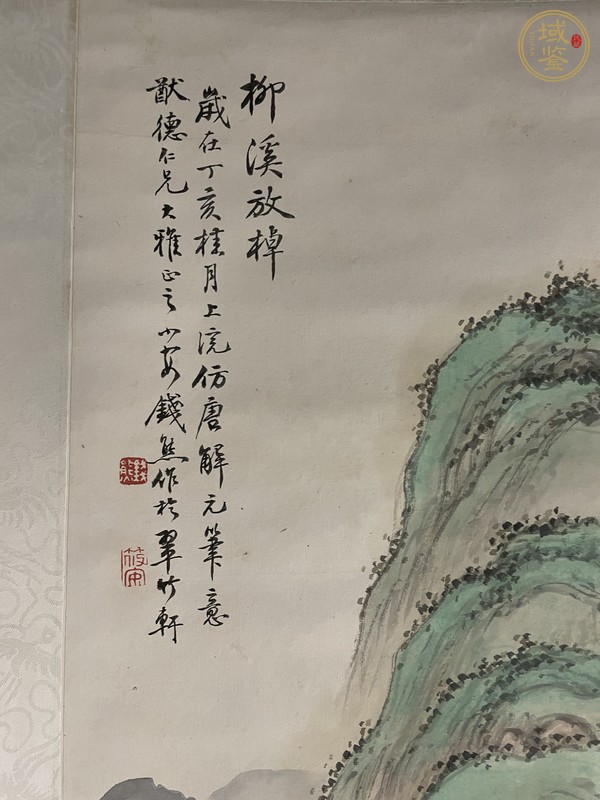 柳溪放棹
嵗在丁亥桂月上浣仿唐解元筆意
猷德仁兄大雅正之小安錢熊作於翠竹軒
筱安
域鉴